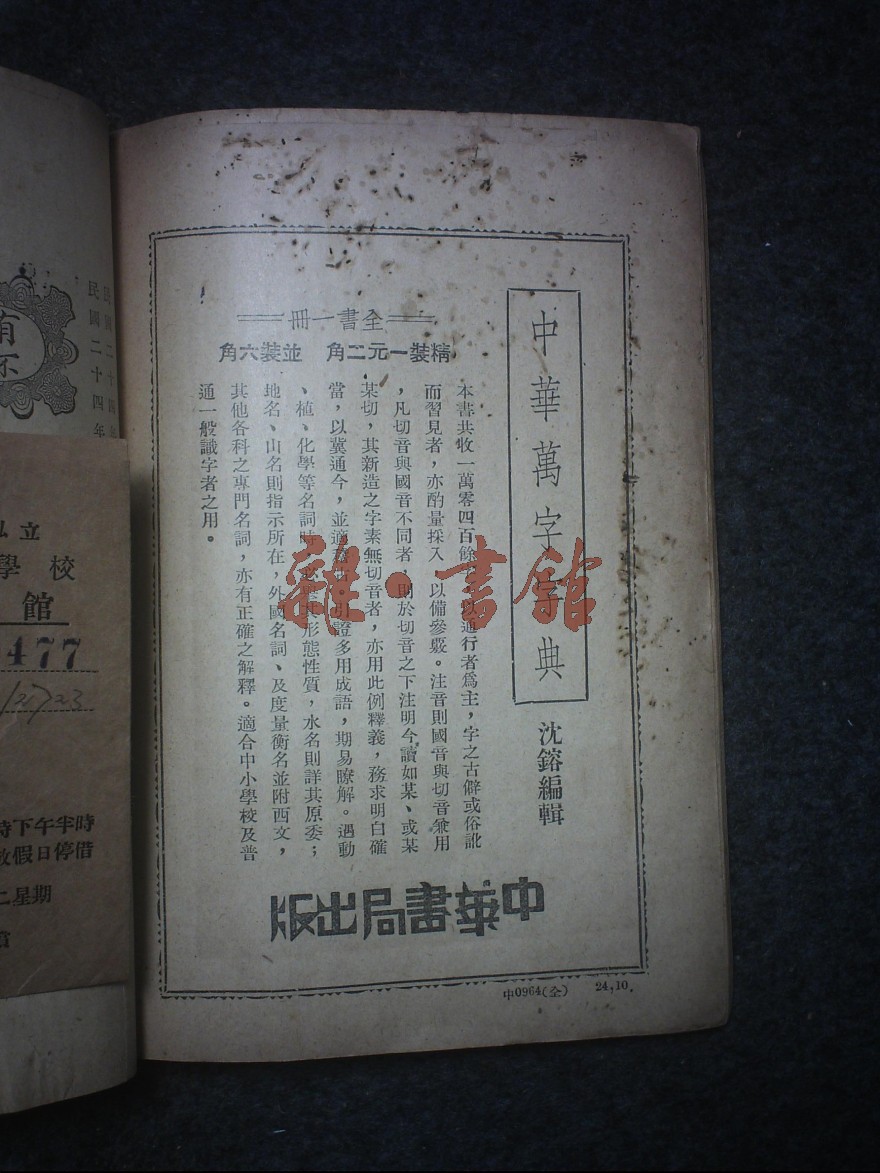 中華萬字字典
沈鎔編輯
全書一冊
精裝一元二角 並裝六角
本書共收一萬零四百餘
以通行者爲主，字之古僻或俗訛
而習見者，亦酌量採入
以備參覈。注音則國音與切音兼用
，凡切音與國音不同者
則於切音之下注明今讀如某、或某
某切，其新造之字素無切音者，亦用此例釋義，務求明白確
當，以冀通今，並適
引證多用成語，期易瞭解。遇動
、植、化學等名詞時，
形態性質，水名則詳其原委；
地名、山名則指示所在，外國名詞、及度量衡名並附西文，
其他各科之專門名詞，亦有正確之解釋。適合中小學校及普
通一般識字者之用。
中華書局出版
中0964(全) 24,10.
雜·書館
民國二十四年
立
學校
館
477
時下午半時
放假日停借
二星期